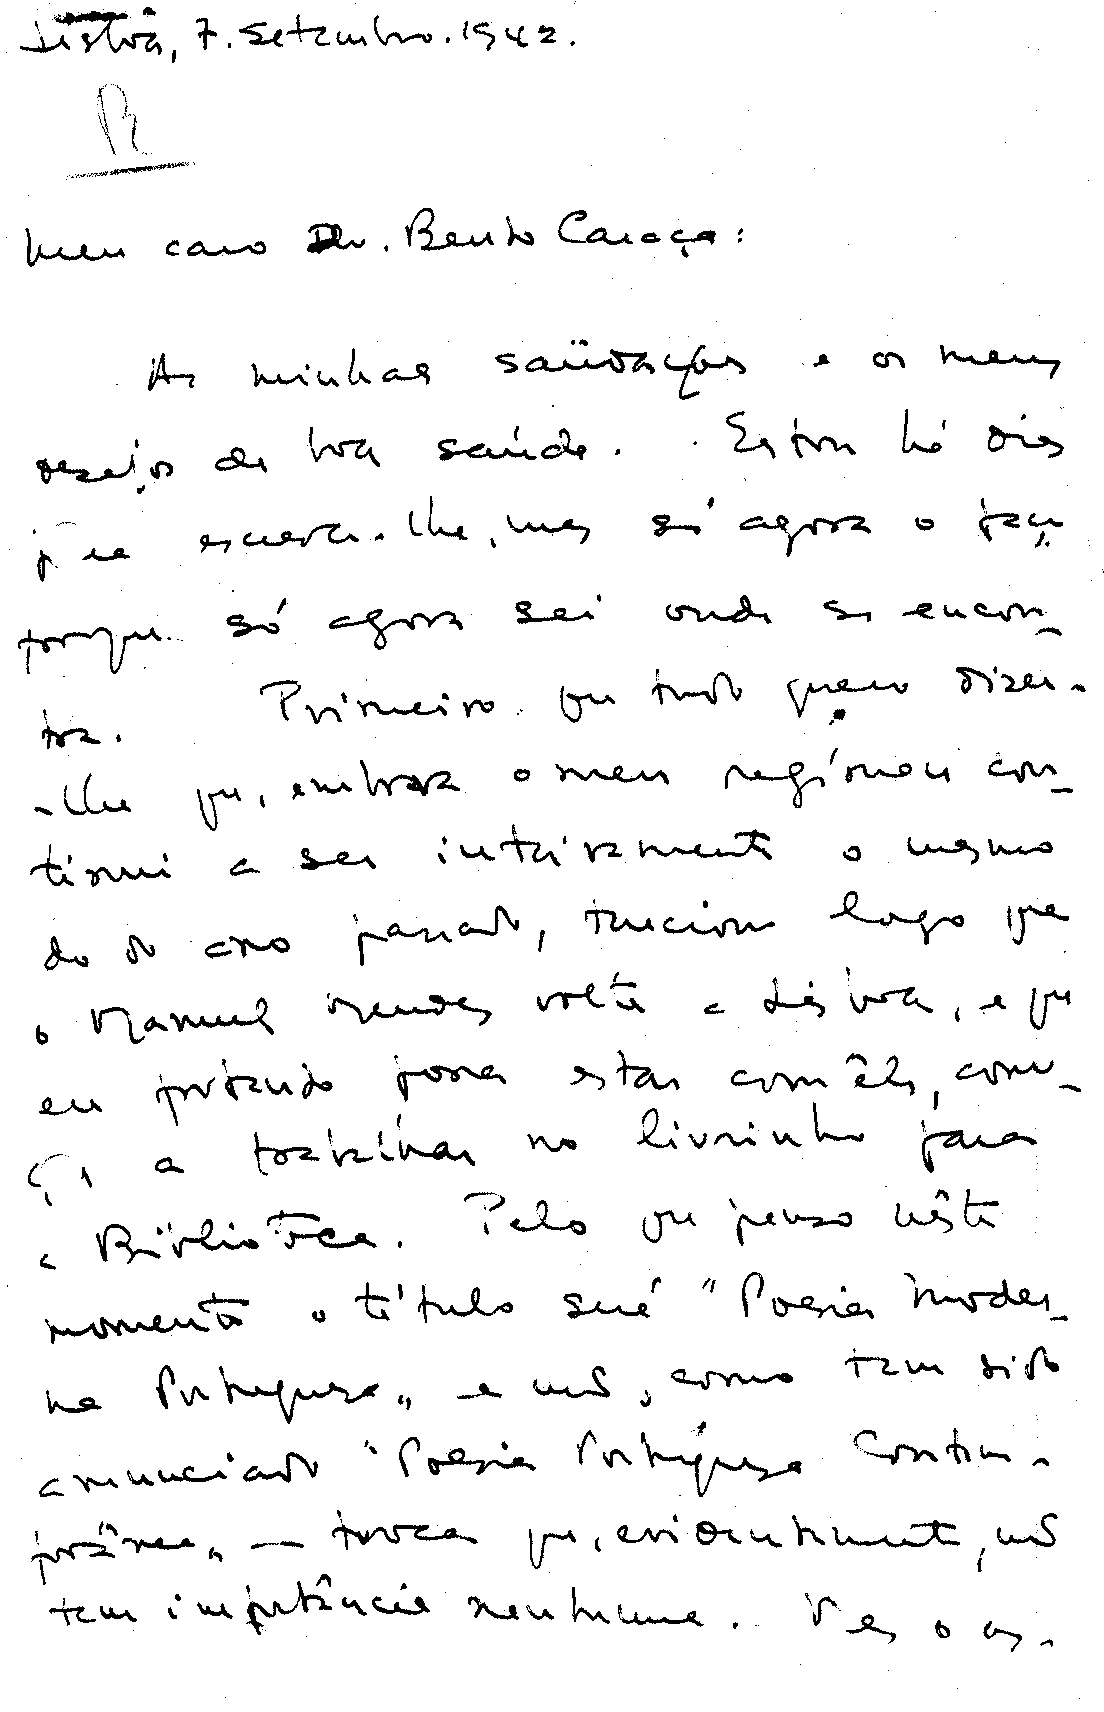 Lisboa, 7. Setembro. 1942.
R
Meu caro Dr. Bento Caraça:
As minhas saüdações e os meus
desejos de boa saúde. Estou há dias
p'ra escrever-lhe, mas só agora o faço
porque só agora sei onde se encon-
tra. Primeiro que tudo quero dizer-
-lhe que, embora o meu regímen con-
tinui a ser inteiramente o mesmo
do do ano passado, tenciono logo que
o Manuel Mendes volte a Lisboa, e que
eu portanto possa estar com êle, come-
çar a trabalhar no livrinho para
a Biblioteca. Pelo que penso nêste
momento o título será "Poesia Moder-
na Portuguesa„ e não, como tem sido
anunciado "Poesia Portuguesa Contem-
porânea„ — troca que, evidentemente, não
tem importância nenhuma. Ver o as-